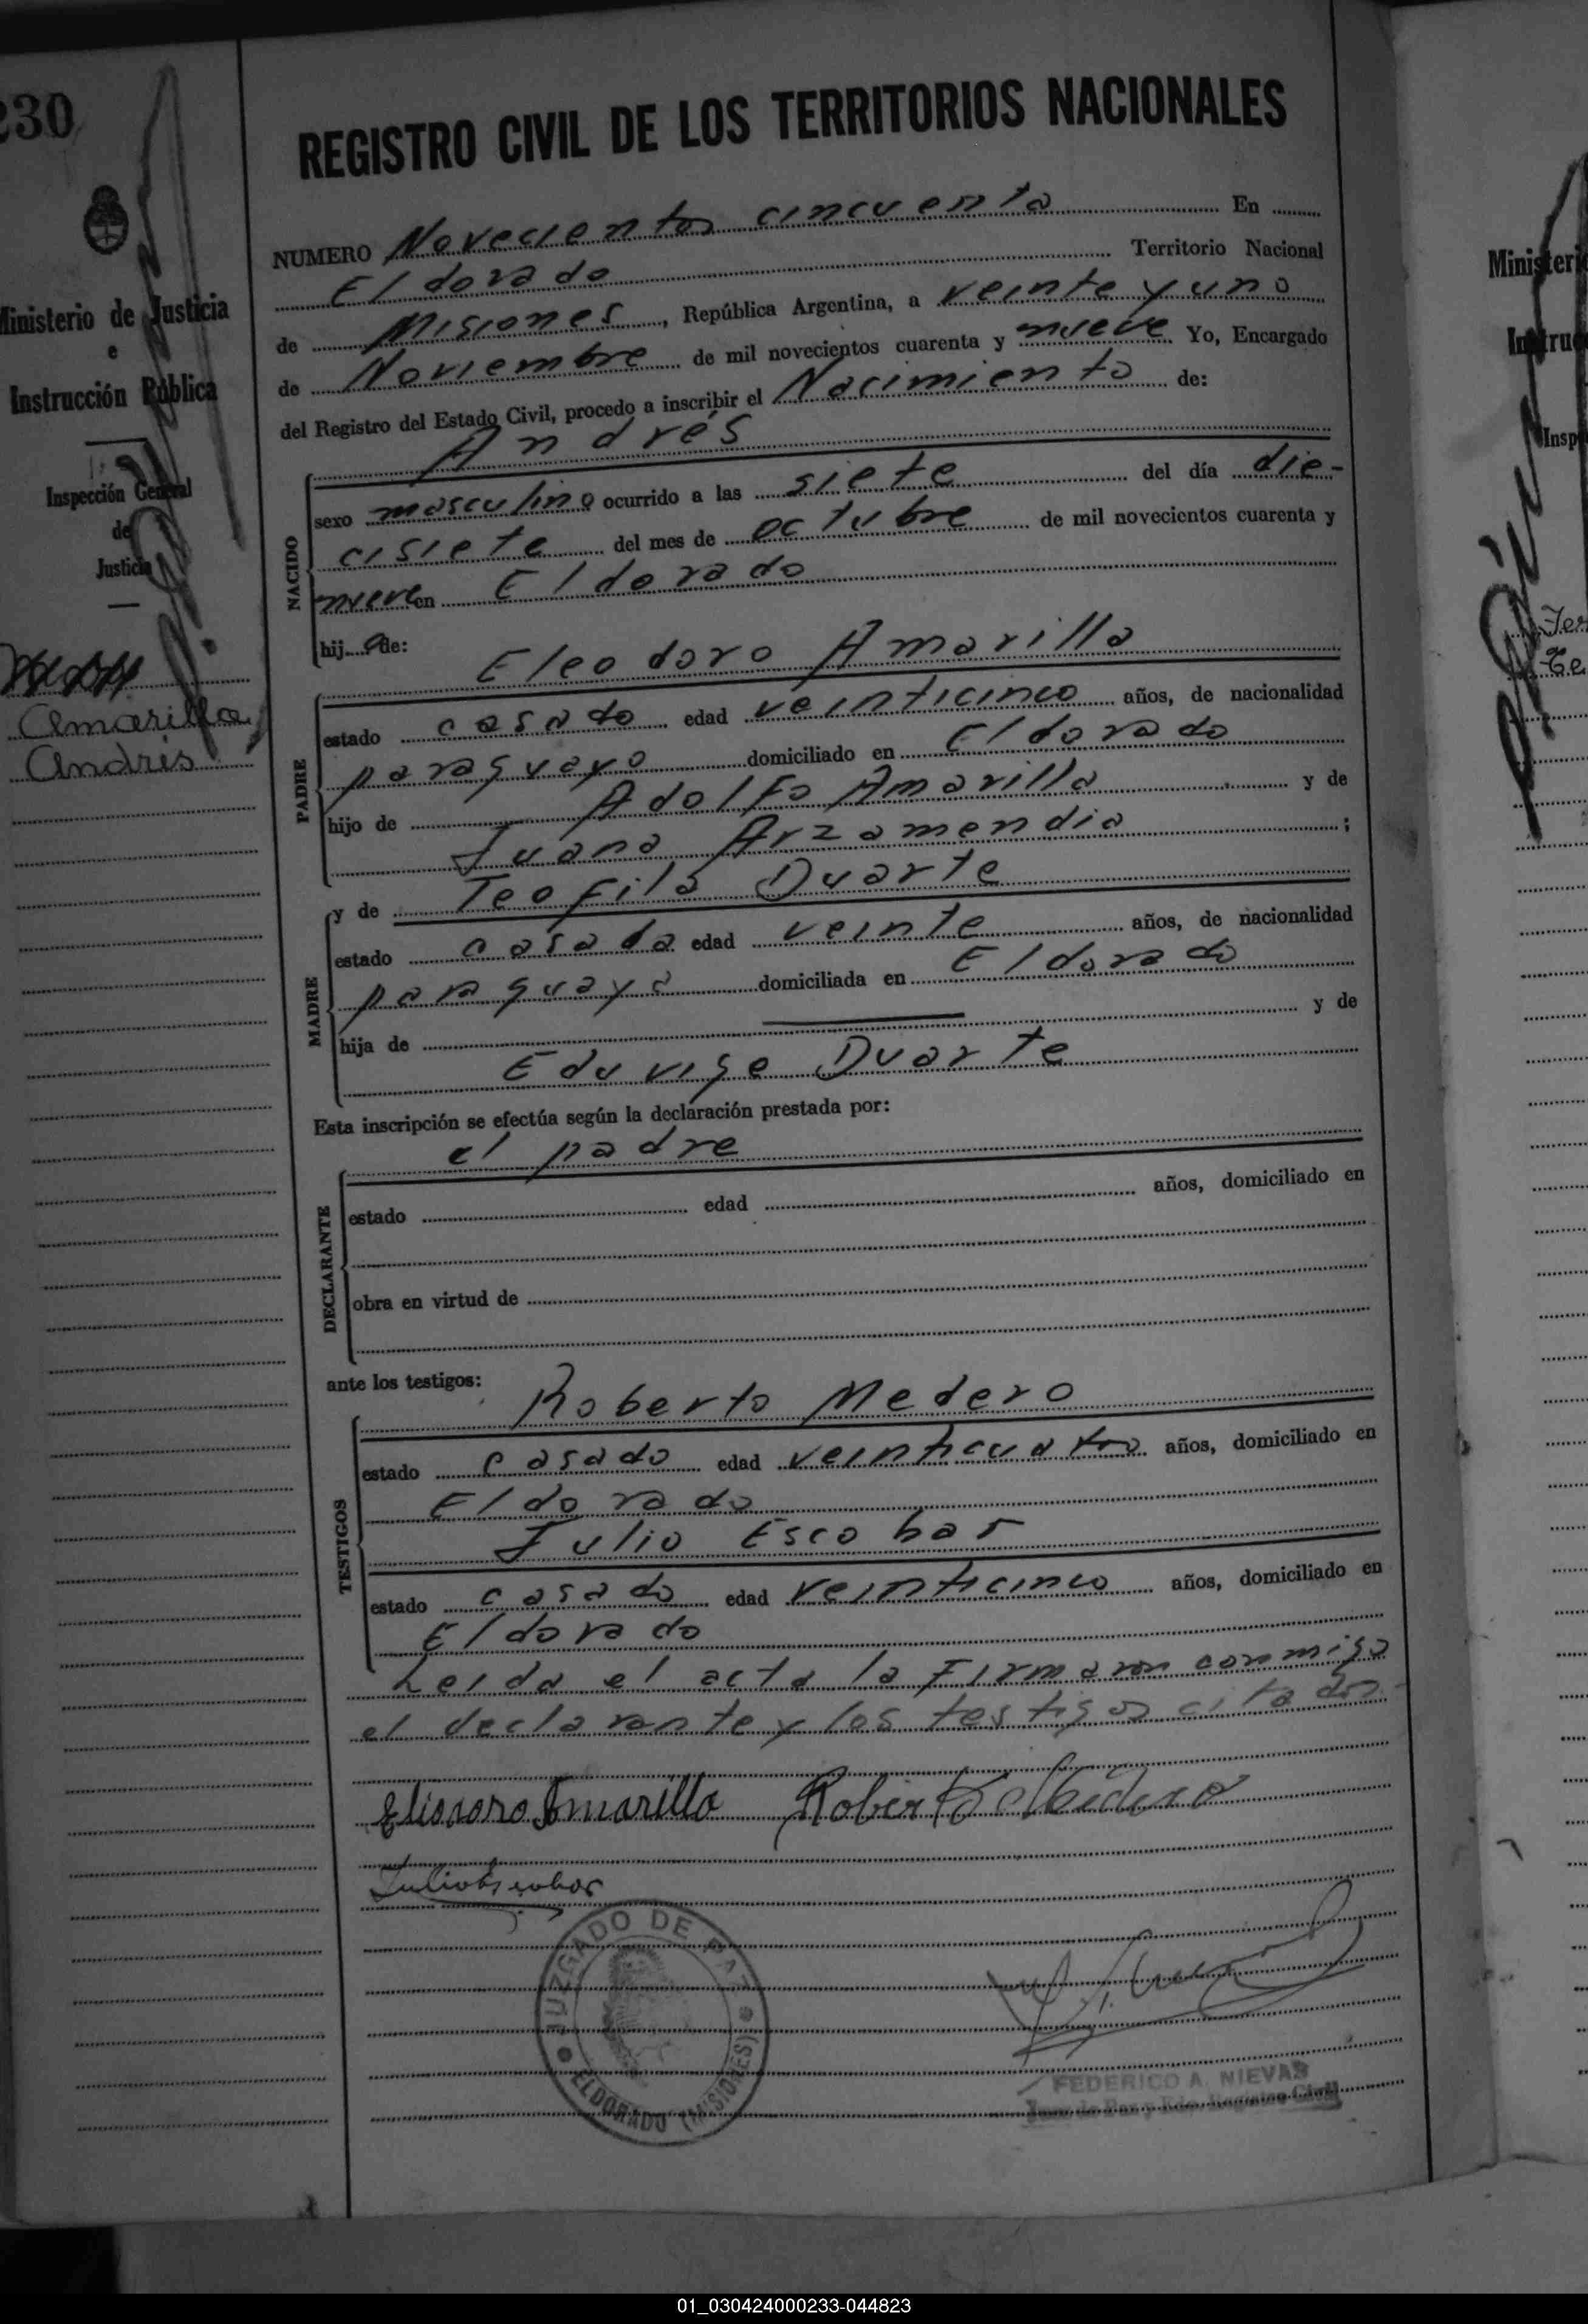 230
Ministerio de Justicia
e
Instrucción Pública
Inspección General
de
Justicia
Amarilla
Andrés
REGISTRO CIVIL DE LOS TERRITORIOS NACIONALES
NUMERO Novecientos cincuenta En
Eldorado Territorio Nacional
de Misiones, República Argentina, a veinte y uno
de Noviembre de mil novecientos cuarenta y nueve Yo, Encargado
del Registro del Estado Civil, procedo a inscribir el Nacimiento de:
Andrés
NACIDO
sexo masculino ocurrido a las siete del día die-
cisiete del mes de octubre de mil novecientos cuarenta y
nueve en Eldorado
hijo de:
Eleodoro Amarilla
PADRE
estado casado edad veinticinco años, de nacionalidad
paraguayo domiciliado en Eldorado
hijo de Adolfo Amarilla y de
Juana Arzamendia ;
y de Teofila Duarte
MADRE
estado casada edad veinte años, de nacionalidad
paraguaya domiciliada en Eldorado
hija de y de
Eduvige Duarte
Esta inscripción se efectúa según la declaración prestada por:
el padre
DECLARANTE
estado edad años, domiciliado en
obra en virtud de
ante los testigos:
Roberto Medero
TESTIGOS
estado casado edad veinticuatro años, domiciliado en
Eldorado
Julio Escobar
estado casado edad veinticinco años, domiciliado en
Eldorado
Leida el acta la Firmaron conmigo
el declarante y los testigos citados.
Eliodoro Amarilla Roberto Medero
Julio Escobar
JUZGADO DE PAZ
ELDORADO (MISIONES)
FEDERICO A. NIEVAS
Juez de Paz y Edo. Registro Civil
Ministeri
Instruc
Insp
01_030424000233-044823